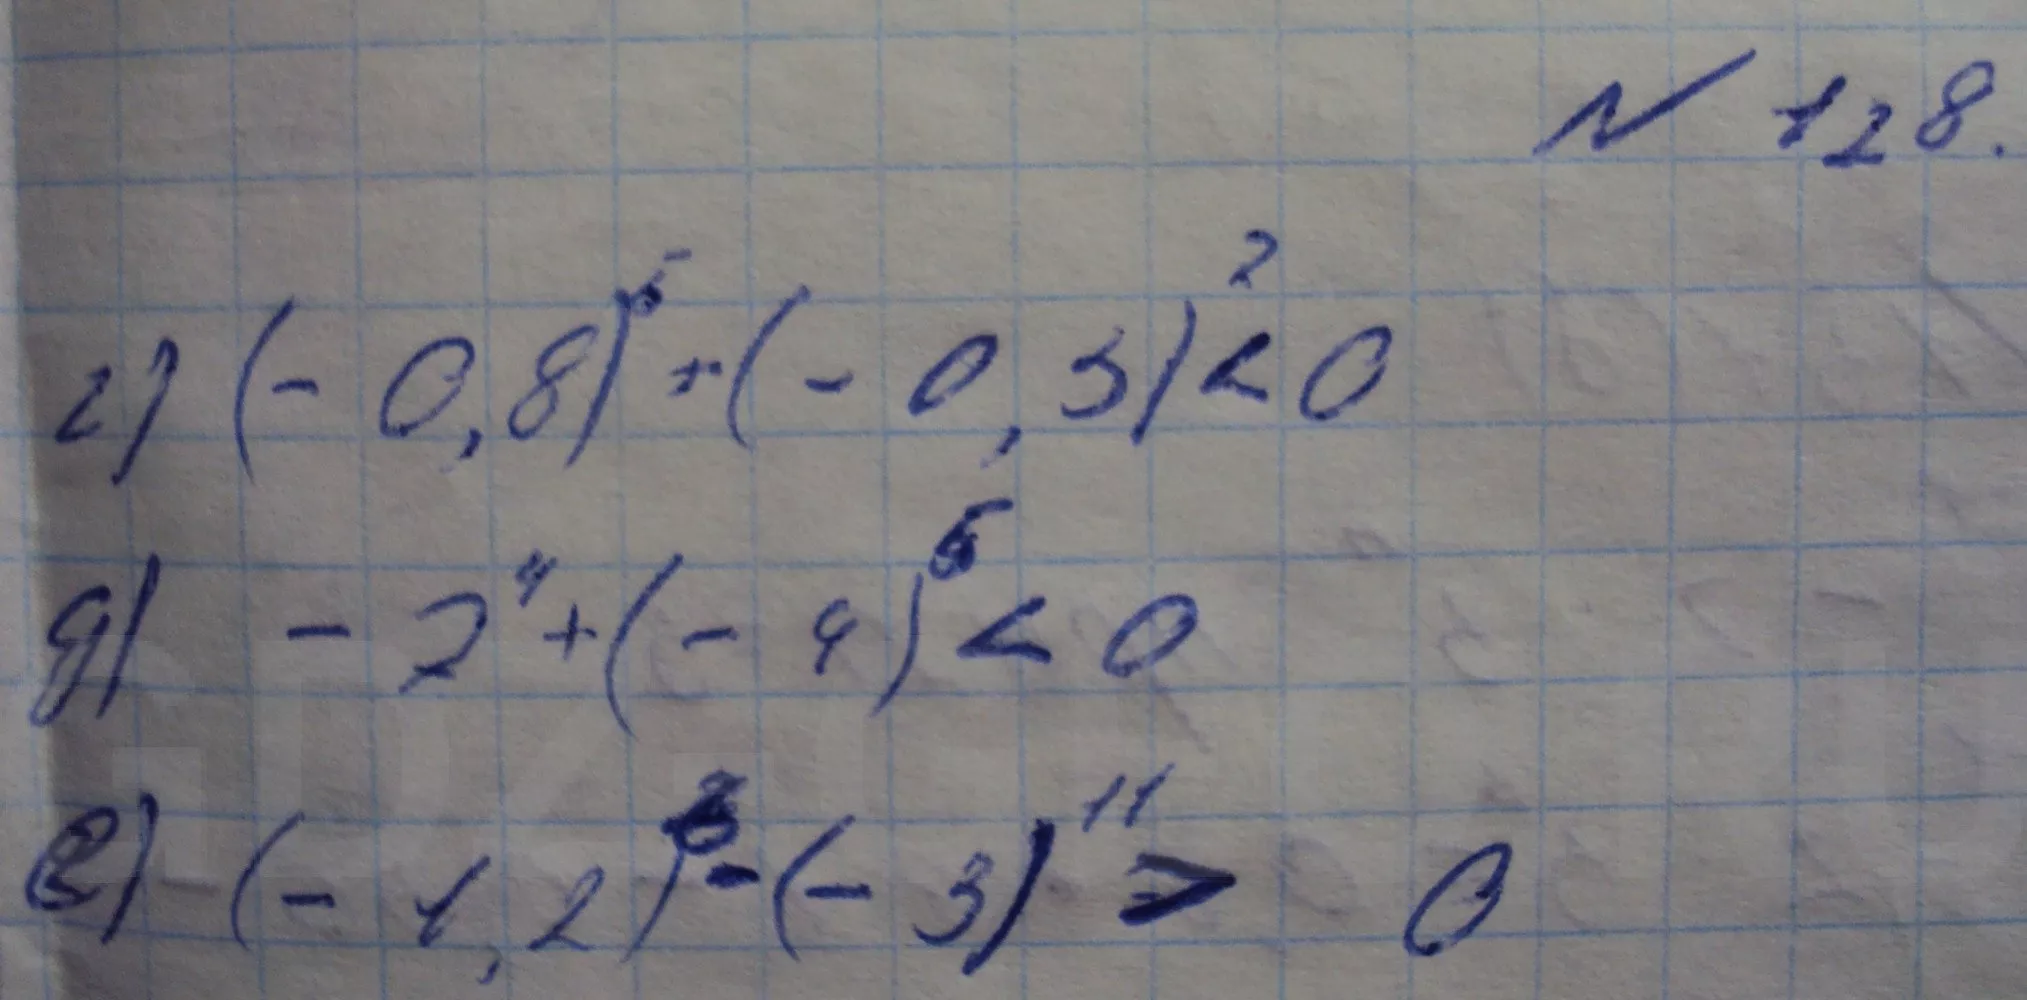 N 128.
г) (-0,8)⁵ + (-0,3)² < 0
д) -2⁴ + (-4)⁵ < 0
е) (-1,2) - (-3)¹¹ > 0